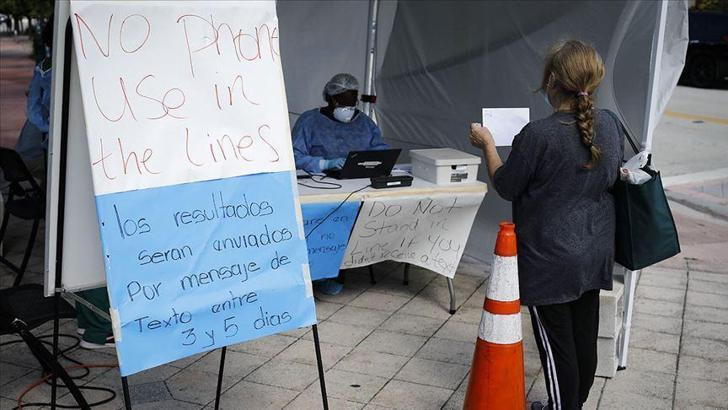 NO Phone
Use in
the Lines
los resultados
seran enviados
Por mensaje de
Texto entre
3 y 5 dias
no
Do Not
Stand in
Line if you